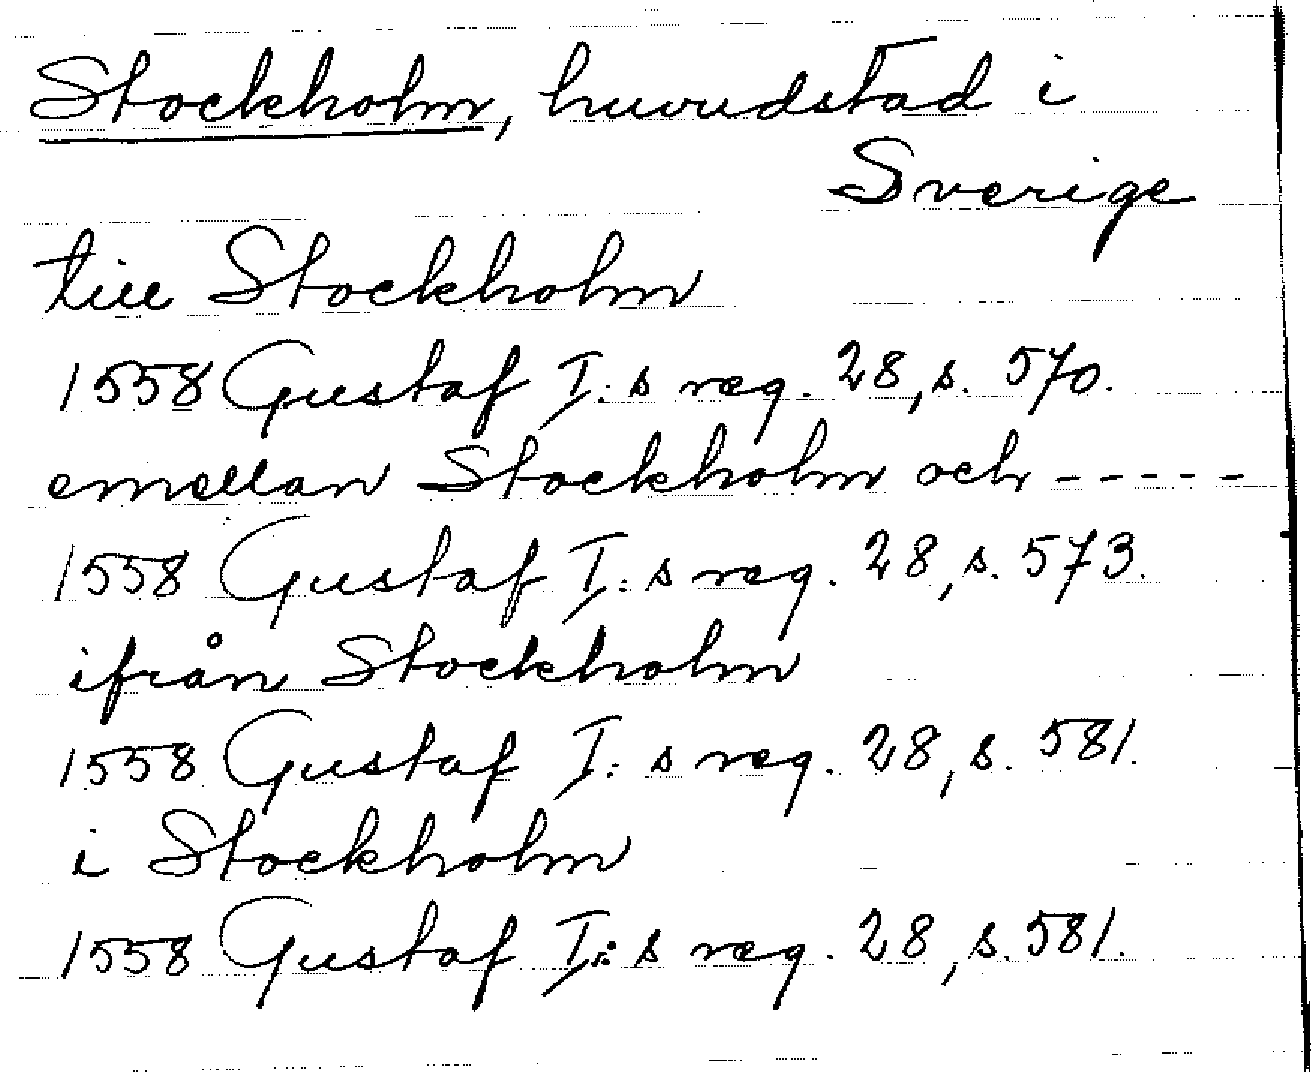 Stockholm, huvudstad i
Sverige
till Stockholm
1558 Gustaf I:s reg. 28, s. 570.
emellan Stockholm och -----
1558 Gustaf I:s reg. 28, s. 573.
ifrån Stockholm
1558 Gustaf I:s reg. 28, s. 581.
i Stockholm
1558 Gustaf I:s reg. 28, s. 581.